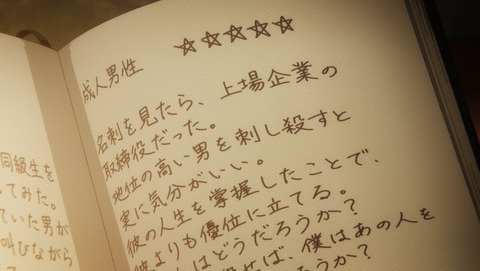 同級生を
してみた。
ていた男が
叫びながら
成人男性 ☆☆☆☆☆
名刺を見たら、上場企業の
取締役だった。
地位の高い男を刺し殺すと
実に気分がいい。
彼の人生を掌握したことで、
彼よりも優位に立てる。
はどうだろうか？
せば、僕はあの人を
ろうか？